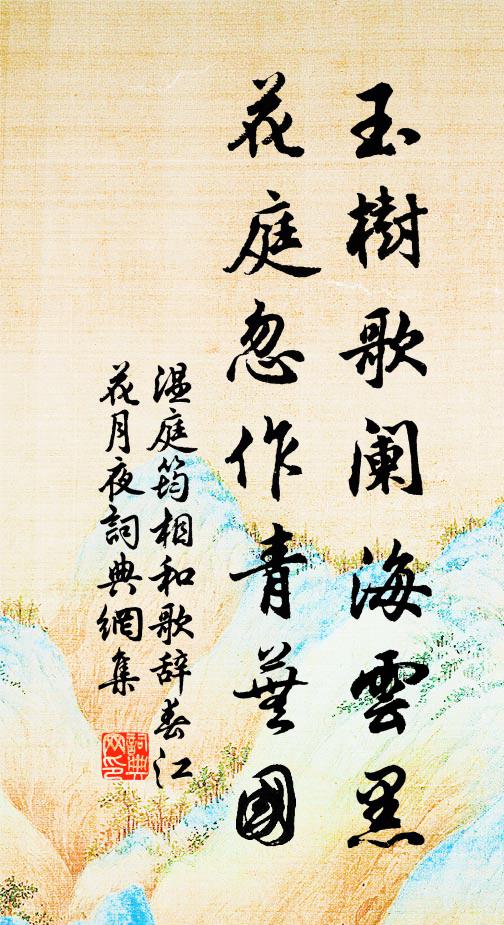 玉樹歌闌海雲黑
花庭忽作青蕪國
温庭筠相和歌辞春江
花月夜詞典網集
詞典网印